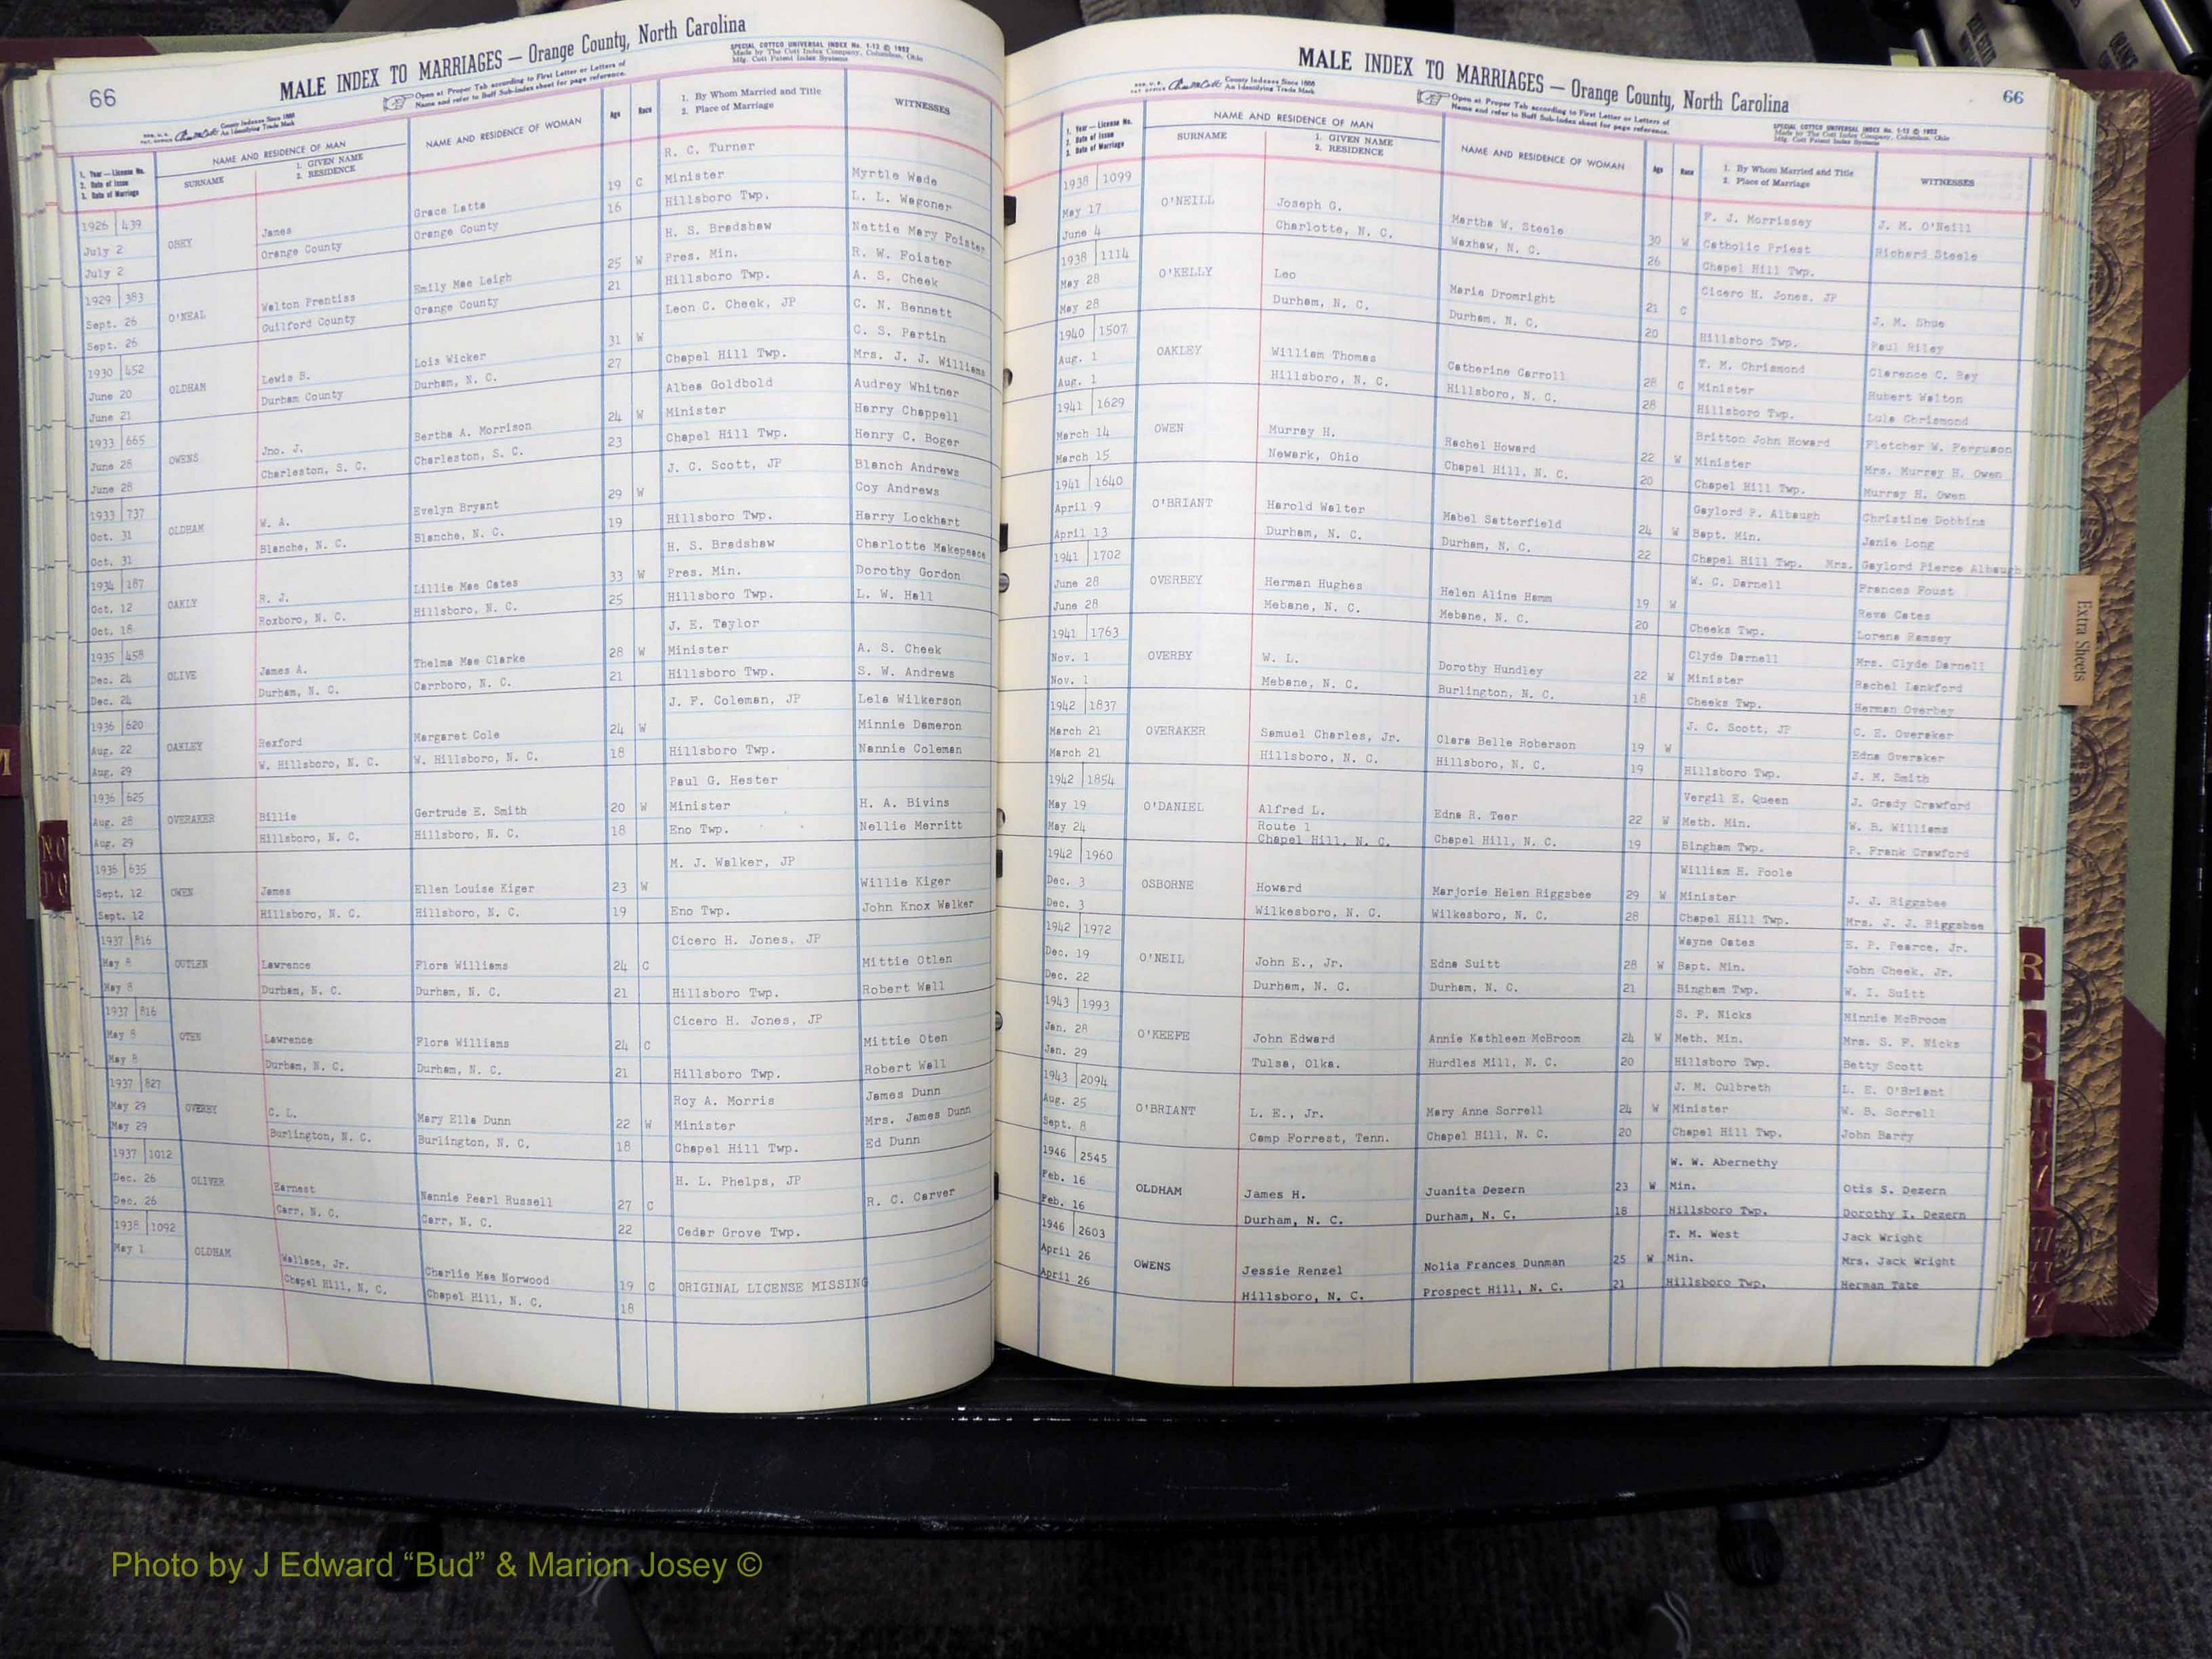 66
MALE INDEX TO MARRIAGES — Orange County, North Carolina
SPECIAL COTTCO UNIVERSAL INDEX No. 1-12 © 1952
Made by The Cott Index Company, Columbus, Ohio
Mfg. Cott Patent Index Systems
Open at Proper Tab according to First Letter or Letters of
Name and refer to Buff Sub-Index sheet for page reference.
County Indexes Since 1888
An Identifying Trade Mark
1. Year — License No.
2. Date of Issue
3. Date of Marriage
NAME AND RESIDENCE OF MAN
SURNAME
1. GIVEN NAME
2. RESIDENCE
NAME AND RESIDENCE OF WOMAN
Age
Race
1. By Whom Married and Title
2. Place of Marriage
WITNESSES
1926 439 R. C. Turner
July 2 OBEY James Grace Latta 19 C Minister Myrtle Wade
July 2 Orange County Orange County 16 Hillsboro Twp. L. L. Wagoner
1929 383 H. S. Bradshaw Nettie Mary Foister
Sept. 26 O'NEAL Walton Prentiss Emily Mae Leigh 25 W Pres. Min. R. W. Foister
Sept. 26 Guilford County Orange County 21 Hillsboro Twp. A. S. Cheek
1930 452 Leon C. Cheek, JP C. N. Bennett
June 20 OLDHAM Lewis B. Lois Wicker 31 W C. S. Partin
June 21 Durham County Durham, N. C. 27 Chapel Hill Twp. Mrs. J. J. Williams
1933 665 Albea Goldbold Audrey Whitner
June 28 OWENS Jno. J. Bertha A. Morrison 24 W Minister Harry Chappell
June 28 Charleston, S. C. Charleston, S. C. 23 Chapel Hill Twp. Henry C. Boger
1933 737 J. C. Scott, JP Blanch Andrews
Oct. 31 OLDHAM W. A. Evelyn Bryant 29 W Coy Andrews
Oct. 31 Blanche, N. C. Blanche, N. C. 19 Hillsboro Twp. Harry Lockhart
1934 187 H. S. Bradshaw Charlotte Makepeace
Oct. 12 OAKLY R. J. Lillie Mae Cates 33 W Pres. Min. Dorothy Gordon
Oct. 18 Roxboro, N. C. Hillsboro, N. C. 25 Hillsboro Twp. L. W. Hall
1935 458 J. E. Taylor
Dec. 24 OLIVE James A. Thelma Mae Clarke 28 W Minister A. S. Cheek
Dec. 24 Durham, N. C. Carrboro, N. C. 21 Hillsboro Twp. S. W. Andrews
1936 620 J. F. Coleman, JP Lela Wilkerson
Aug. 22 OAKLEY Rexford Margaret Cole 24 W Minnie Dameron
Aug. 29 W. Hillsboro, N. C. W. Hillsboro, N. C. 18 Hillsboro Twp. Nannie Coleman
1936 625 Paul G. Hester
Aug. 28 OVERAKER Billie Gertrude E. Smith 20 W Minister H. A. Bivins
Aug. 29 Hillsboro, N. C. Hillsboro, N. C. 18 Eno Twp. Nellie Merritt
1936 635 M. J. Walker, JP
Sept. 12 OWEN James Ellen Louise Kiger 23 W Willie Kiger
Sept. 12 Hillsboro, N. C. Hillsboro, N. C. 19 Eno Twp. John Knox Walker
1937 816 Cicero H. Jones, JP
May 8 OUTLEN Lawrence Flora Williams 24 C Mittie Otlen
May 8 Durham, N. C. Durham, N. C. 21 Hillsboro Twp. Robert Wall
1937 816 Cicero H. Jones, JP
May 8 OTEN Lawrence Flora Williams 24 C Mittie Oten
May 8 Durham, N. C. Durham, N. C. 21 Hillsboro Twp. Robert Wall
1937 827 Roy A. Morris James Dunn
May 29 OVERBY C. L. Mary Ella Dunn 22 W Minister Mrs. James Dunn
May 29 Burlington, N. C. Burlington, N. C. 18 Chapel Hill Twp. Ed Dunn
1937 1012 H. L. Phelps, JP
Dec. 26 OLIVER Earnest Nannie Pearl Russell 27 C R. C. Carver
Dec. 26 Carr, N. C. Carr, N. C. 22 Cedar Grove Twp.
1938 1092
May 1 OLDHAM Wallace, Jr. Charlie Mae Norwood 19 C ORIGINAL LICENSE MISSING
Chapel Hill, N. C. Chapel Hill, N. C. 18
MALE INDEX TO MARRIAGES — Orange County, North Carolina
66
County Indexes Since 1888
An Identifying Trade Mark
Open at Proper Tab according to First Letter or Letters of
Name and refer to Buff Sub-Index sheet for page reference.
SPECIAL COTTCO UNIVERSAL INDEX No. 1-12 © 1952
Made by The Cott Index Company, Columbus, Ohio
Mfg. Cott Patent Index Systems
1. Year — License No.
2. Date of Issue
3. Date of Marriage
NAME AND RESIDENCE OF MAN
SURNAME
1. GIVEN NAME
2. RESIDENCE
NAME AND RESIDENCE OF WOMAN
Age
Race
1. By Whom Married and Title
2. Place of Marriage
WITNESSES
1938 1099 F. J. Morrissey J. M. O'Neill
May 17 O'NEILL Joseph G. Martha W. Steele 30 W Catholic Priest Richard Steele
June 4 Charlotte, N. C. Waxhaw, N. C. 26 Chapel Hill Twp.
1938 1114 Cicero H. Jones, JP
May 28 O'KELLY Leo Marie Dromright 21 C J. M. Shue
May 28 Durham, N. C. Durham, N. C. 20 Hillsboro Twp. Paul Riley
1940 1507 T. M. Chrismond Clarence C. Ray
Aug. 1 OAKLEY William Thomas Catherine Carroll 28 C Minister Hubert Walton
Aug. 1 Hillsboro, N. C. Hillsboro, N. C. 28 Hillsboro Twp. Lula Chrismond
1941 1629 Britton John Howard Fletcher W. Ferguson
March 14 OWEN Murray H. Rachel Howard 22 W Minister Mrs. Murray H. Owen
March 15 Newark, Ohio Chapel Hill, N. C. 20 Chapel Hill Twp. Murray H. Owen
1941 1640 Gaylord P. Albaugh Christine Dobbins
April 9 O'BRIANT Harold Walter Mabel Satterfield 24 W Bapt. Min. Janie Long
April 13 Durham, N. C. Durham, N. C. 22 Chapel Hill Twp. Mrs. Gaylord Pierce Albaugh
1941 1702 W. C. Darnell Frances Foust
June 28 OVERBEY Herman Hughes Helen Aline Hamm 19 W Reva Cates
June 28 Mebane, N. C. Mebane, N. C. 20 Cheeks Twp. Lorena Ramsey
1941 1763 Clyde Darnell Mrs. Clyde Darnell
Nov. 1 OVERBY W. L. Dorothy Hundley 22 W Minister Rachel Lankford
Nov. 1 Mebane, N. C. Burlington, N. C. 18 Cheeks Twp. Herman Overbey
1942 1837 J. C. Scott, JP C. E. Overaker
March 21 OVERAKER Samuel Charles, Jr. Clara Belle Roberson 19 W Edna Overaker
March 21 Hillsboro, N. C. Hillsboro, N. C. 19 Hillsboro Twp. J. M. Smith
1942 1854 Vergil E. Queen J. Grady Crawford
May 19 O'DANIEL Alfred L. Edna R. Teer 22 W Meth. Min. W. B. Williams
May 24 Route 1
Chapel Hill, N. C. Chapel Hill, N. C. 19 Bingham Twp. P. Frank Crawford
1942 1960 William H. Poole
Dec. 3 OSBORNE Howard Marjorie Helen Riggsbee 29 W Minister J. J. Riggsbee
Dec. 3 Wilkesboro, N. C. Wilkesboro, N. C. 28 Chapel Hill Twp. Mrs. J. J. Riggsbee
1942 1972 Wayne Oates E. P. Pearce, Jr.
Dec. 19 O'NEIL John E., Jr. Edna Suitt 28 W Bapt. Min. John Cheek, Jr.
Dec. 22 Durham, N. C. Durham, N. C. 21 Bingham Twp. W. I. Suitt
1943 1993 S. F. Nicks Minnie McBroom
Jan. 28 O'KEEFE John Edward Annie Kathleen McBroom 24 W Meth. Min. Mrs. S. F. Nicks
Jan. 29 Tulsa, Olka. Hurdles Mill, N. C. 20 Hillsboro Twp. Betty Scott
1943 2094 J. M. Culbreth L. E. O'Briant
Aug. 25 O'BRIANT L. E., Jr. Mary Anne Sorrell 24 W Minister W. B. Sorrell
Sept. 8 Camp Forrest, Tenn. Chapel Hill, N. C. 20 Chapel Hill Twp. John Barry
1946 2545 W. W. Abernethy
Feb. 16 OLDHAM James H. Juanita Dezern 23 W Min. Otis S. Dezern
Feb. 16 Durham, N. C. Durham, N. C. 18 Hillsboro Twp. Dorothy I. Dezern
1946 2603 T. M. West Jack Wright
April 26 OWENS Jessie Renzel Nolia Frances Dunman 25 W Min. Mrs. Jack Wright
April 26 Hillsboro, N. C. Prospect Hill, N. C. 21 Hillsboro Twp. Herman Tate
Extra Sheets
R
S
Photo by J Edward “Bud” & Marion Josey ©